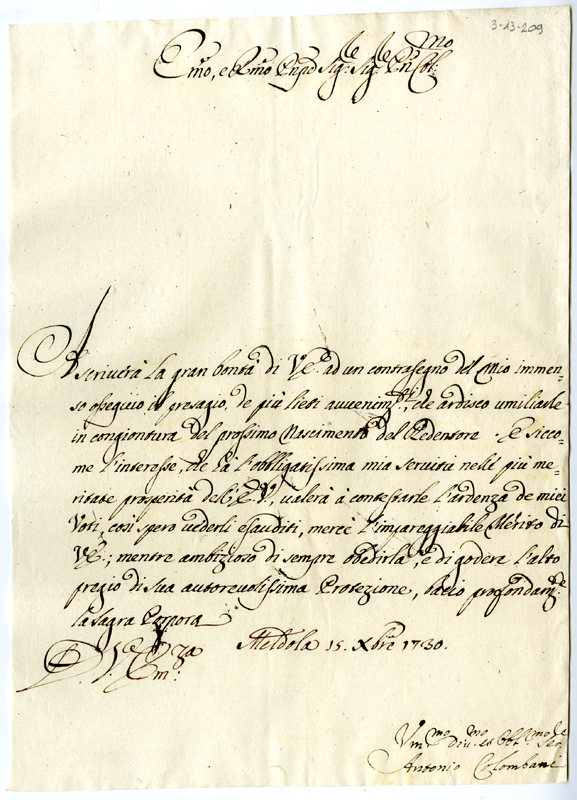 3-13-209
Emo, e Rmo Pnpe Sigre Sigre Pn Colmo
Ascriverà la gran bontà di V.E. ad un contrasegno del mio immen=
so osseguio il presagio, de più lieti avvenimti, che ardisco umiliarle
in congiontura del prossimo Nascimento del Redentore. E sicco=
me l'interesse, che hà l'obbligatissima mia servitù nelle più me=
ritate prosperità dell'E.V., valerà à contestarle l'ardenza de miei
Voti, così spero vederli esauditi, mercè l'impareggiabile Merito di
V.E.; mentre ambizioso di sempre obedirla, e di godere l'alto
pregio di sua autorevolissima Protezione, bacio profondamte
la Sagra Porpora
D. V. Emza Meldola 15. Xbre 1730.
Vmmo divmo ed Obbmo Sere
Antonio Colombani